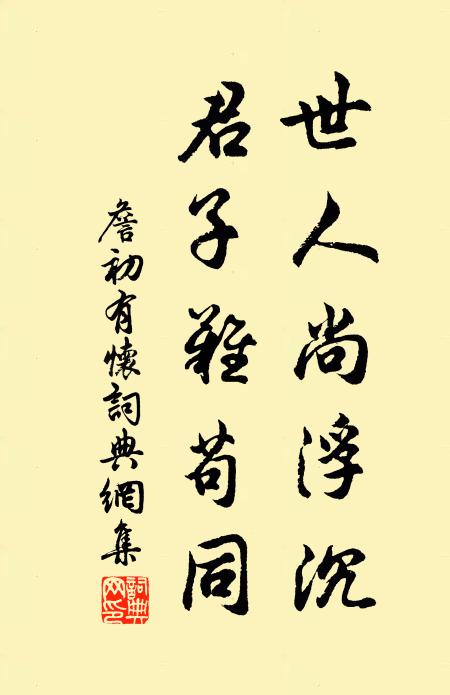 世人尚浮沉
君子難苟同
詹初有懷詞典網集
詞典網印